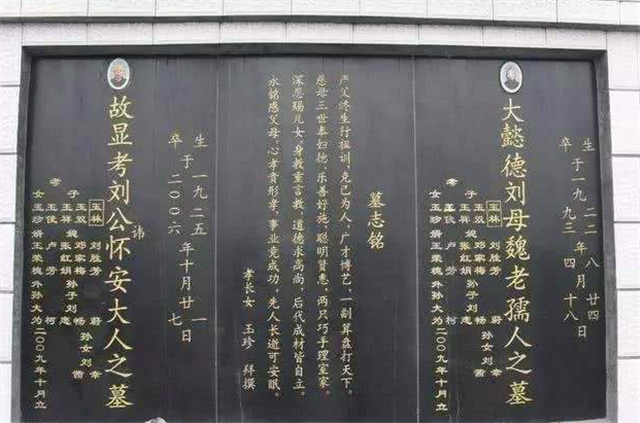 生于一九二二年八月廿四日
卒于一九九三年四月十八日
大懿德刘母魏老孺人之墓
玉林 刘胜芳 蔚
玉双 邓家梅 杨 孙女刘幸
子 玉祥 张红娟 孙子刘志
孝 玉俊 卢芳 柯 茜
女玉珍婿王荣槐外孙大为二00九年十月立
墓志铭
严父终生行祖训，克己为人，广才博艺，一副算盘打天下。
慈母三世奉妇德，乐善好施，聪明贤惠，两只巧手理室家。
深恩赐儿女，身教重言教，道德求高尚，后代成材皆自立。
永铭感父母，心孝贵形孝，事业竟成功，先人长道可安眠。
孝长女 玉珍 拜撰
生于一九二五年十月一日
卒于二00六年十月廿七日
故显考刘公讳怀安大人之墓
玉林 刘胜芳 蔚
玉双 邓家梅 杨 孙女刘幸
子 玉祥 张红娟 孙子刘志
孝 玉俊 卢芳 柯 茜
女玉珍婿王荣槐外孙大为二00九年十月立